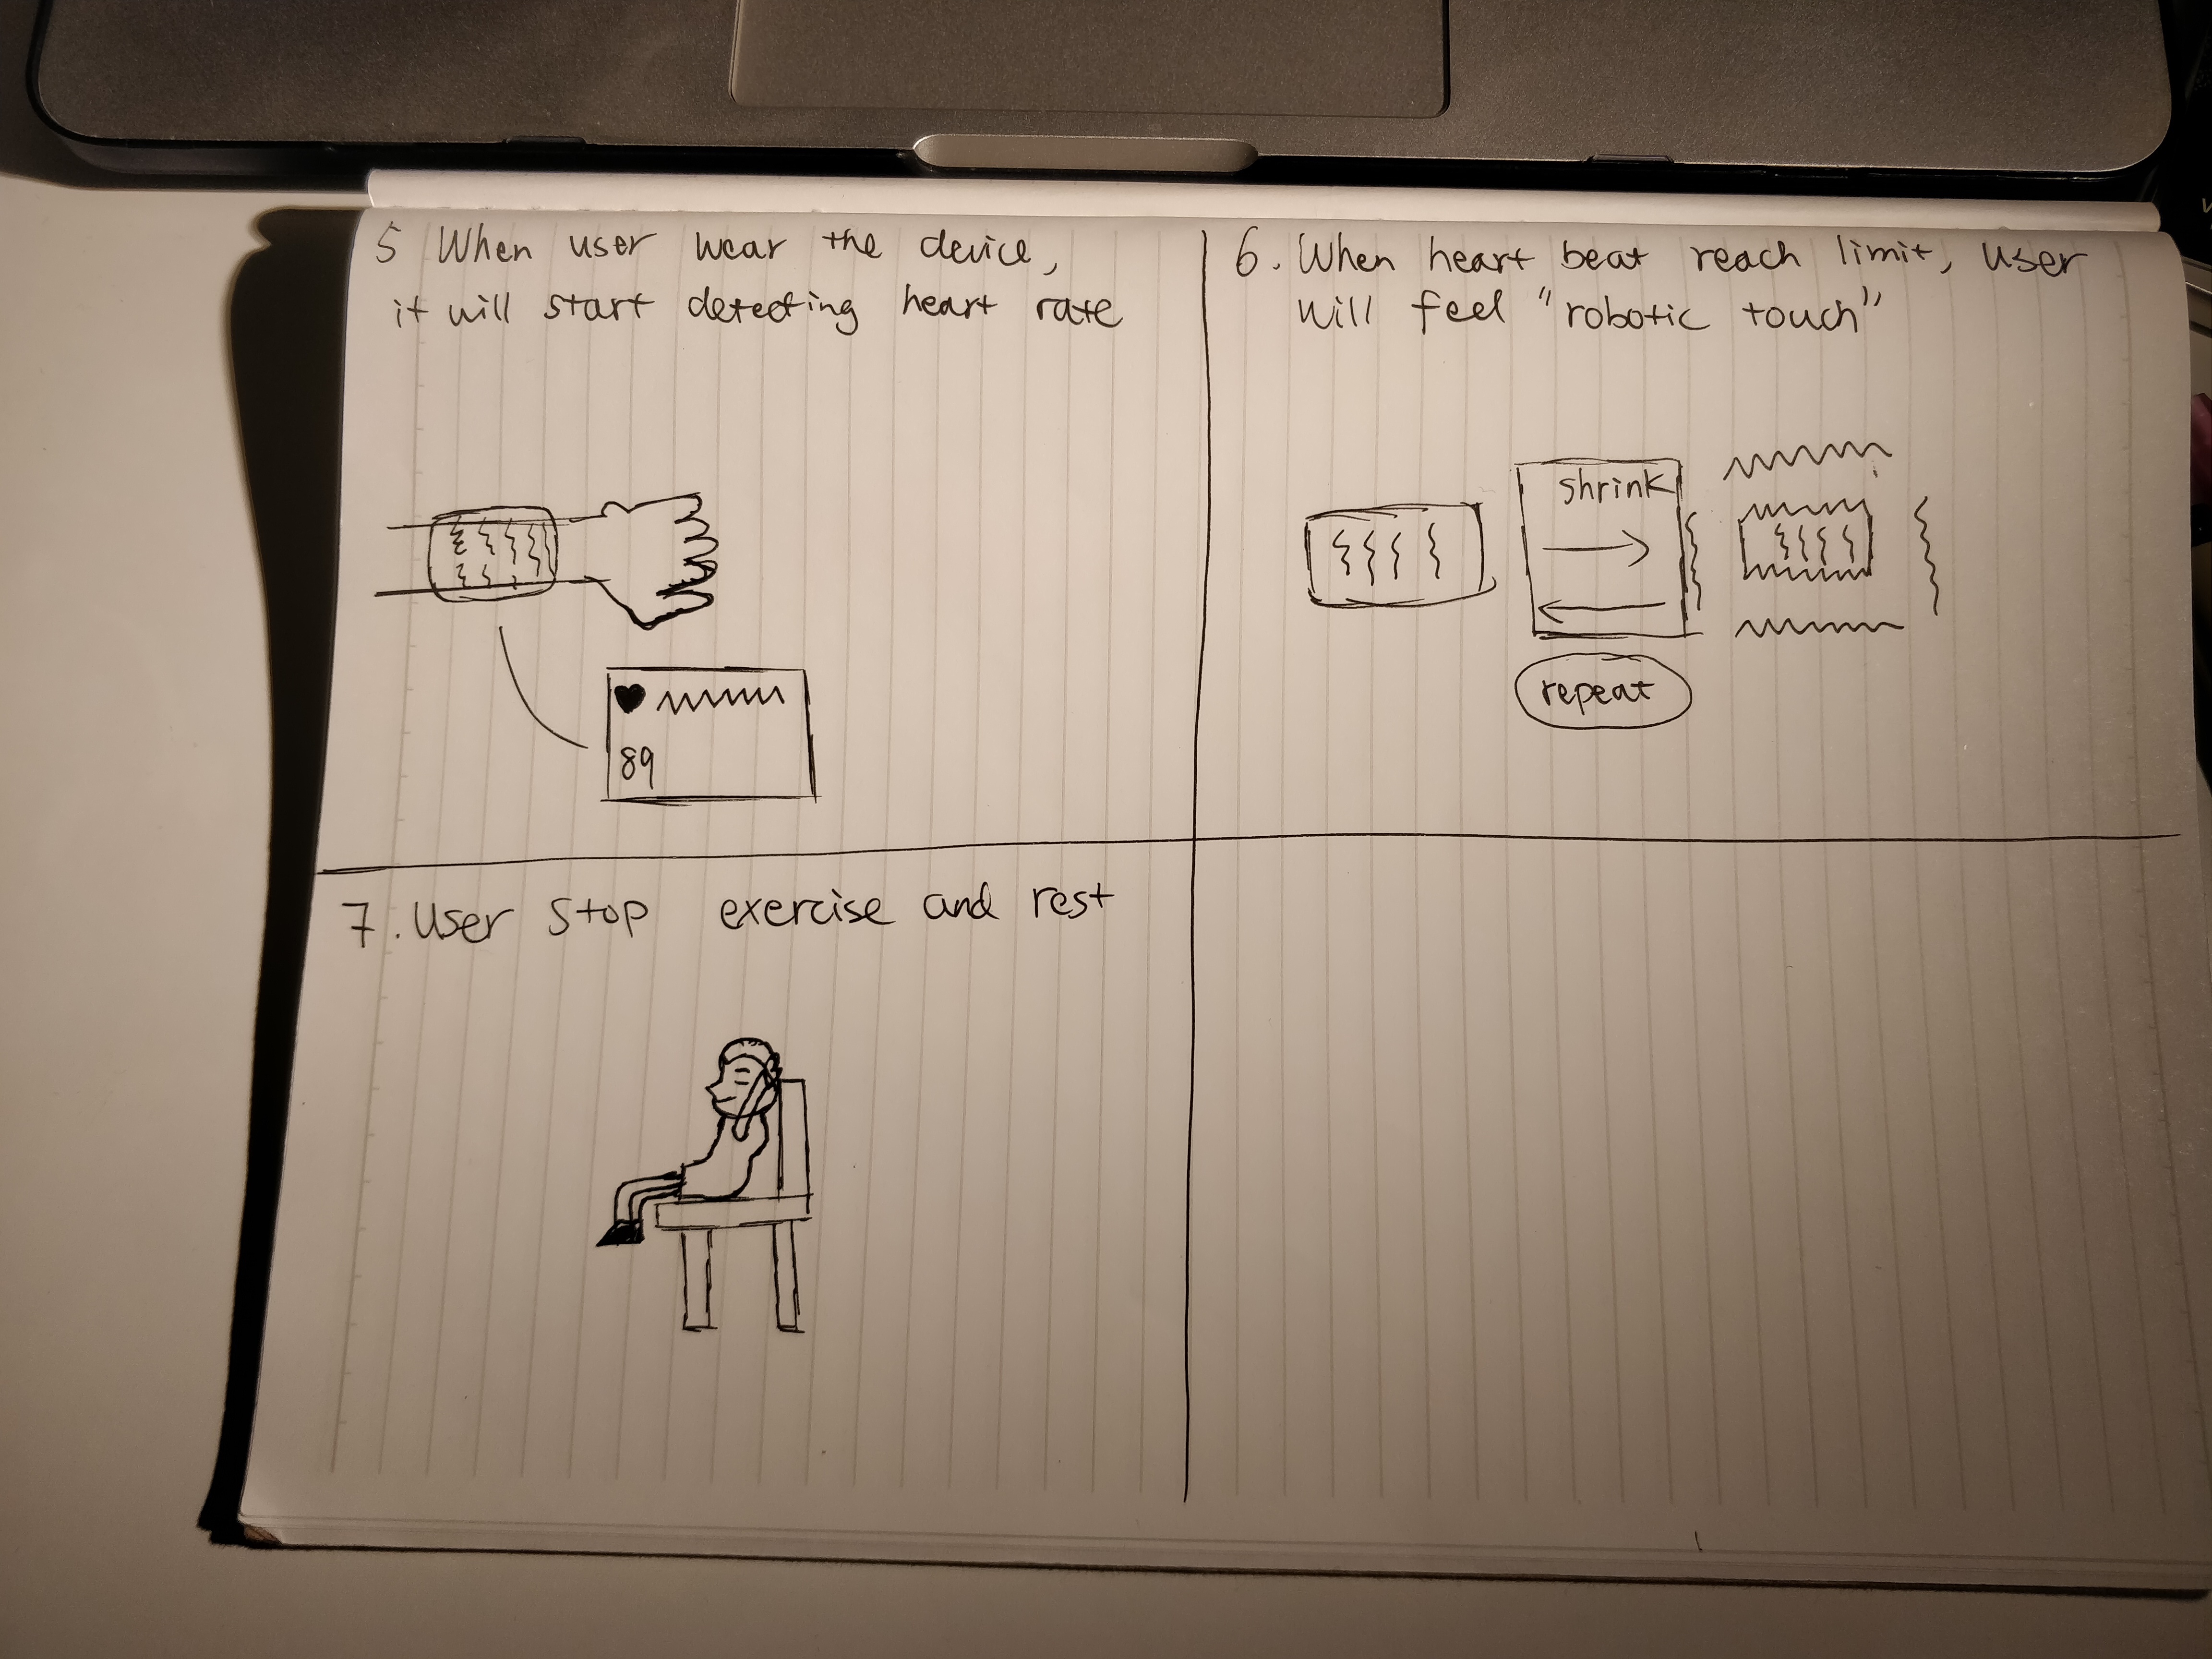 5 When user wear the device,
it will start detecting heart rate
89
6. When heart beat reach limit, user
will feel "robotic touch"
shrink
repeat
7. User stop exercise and rest